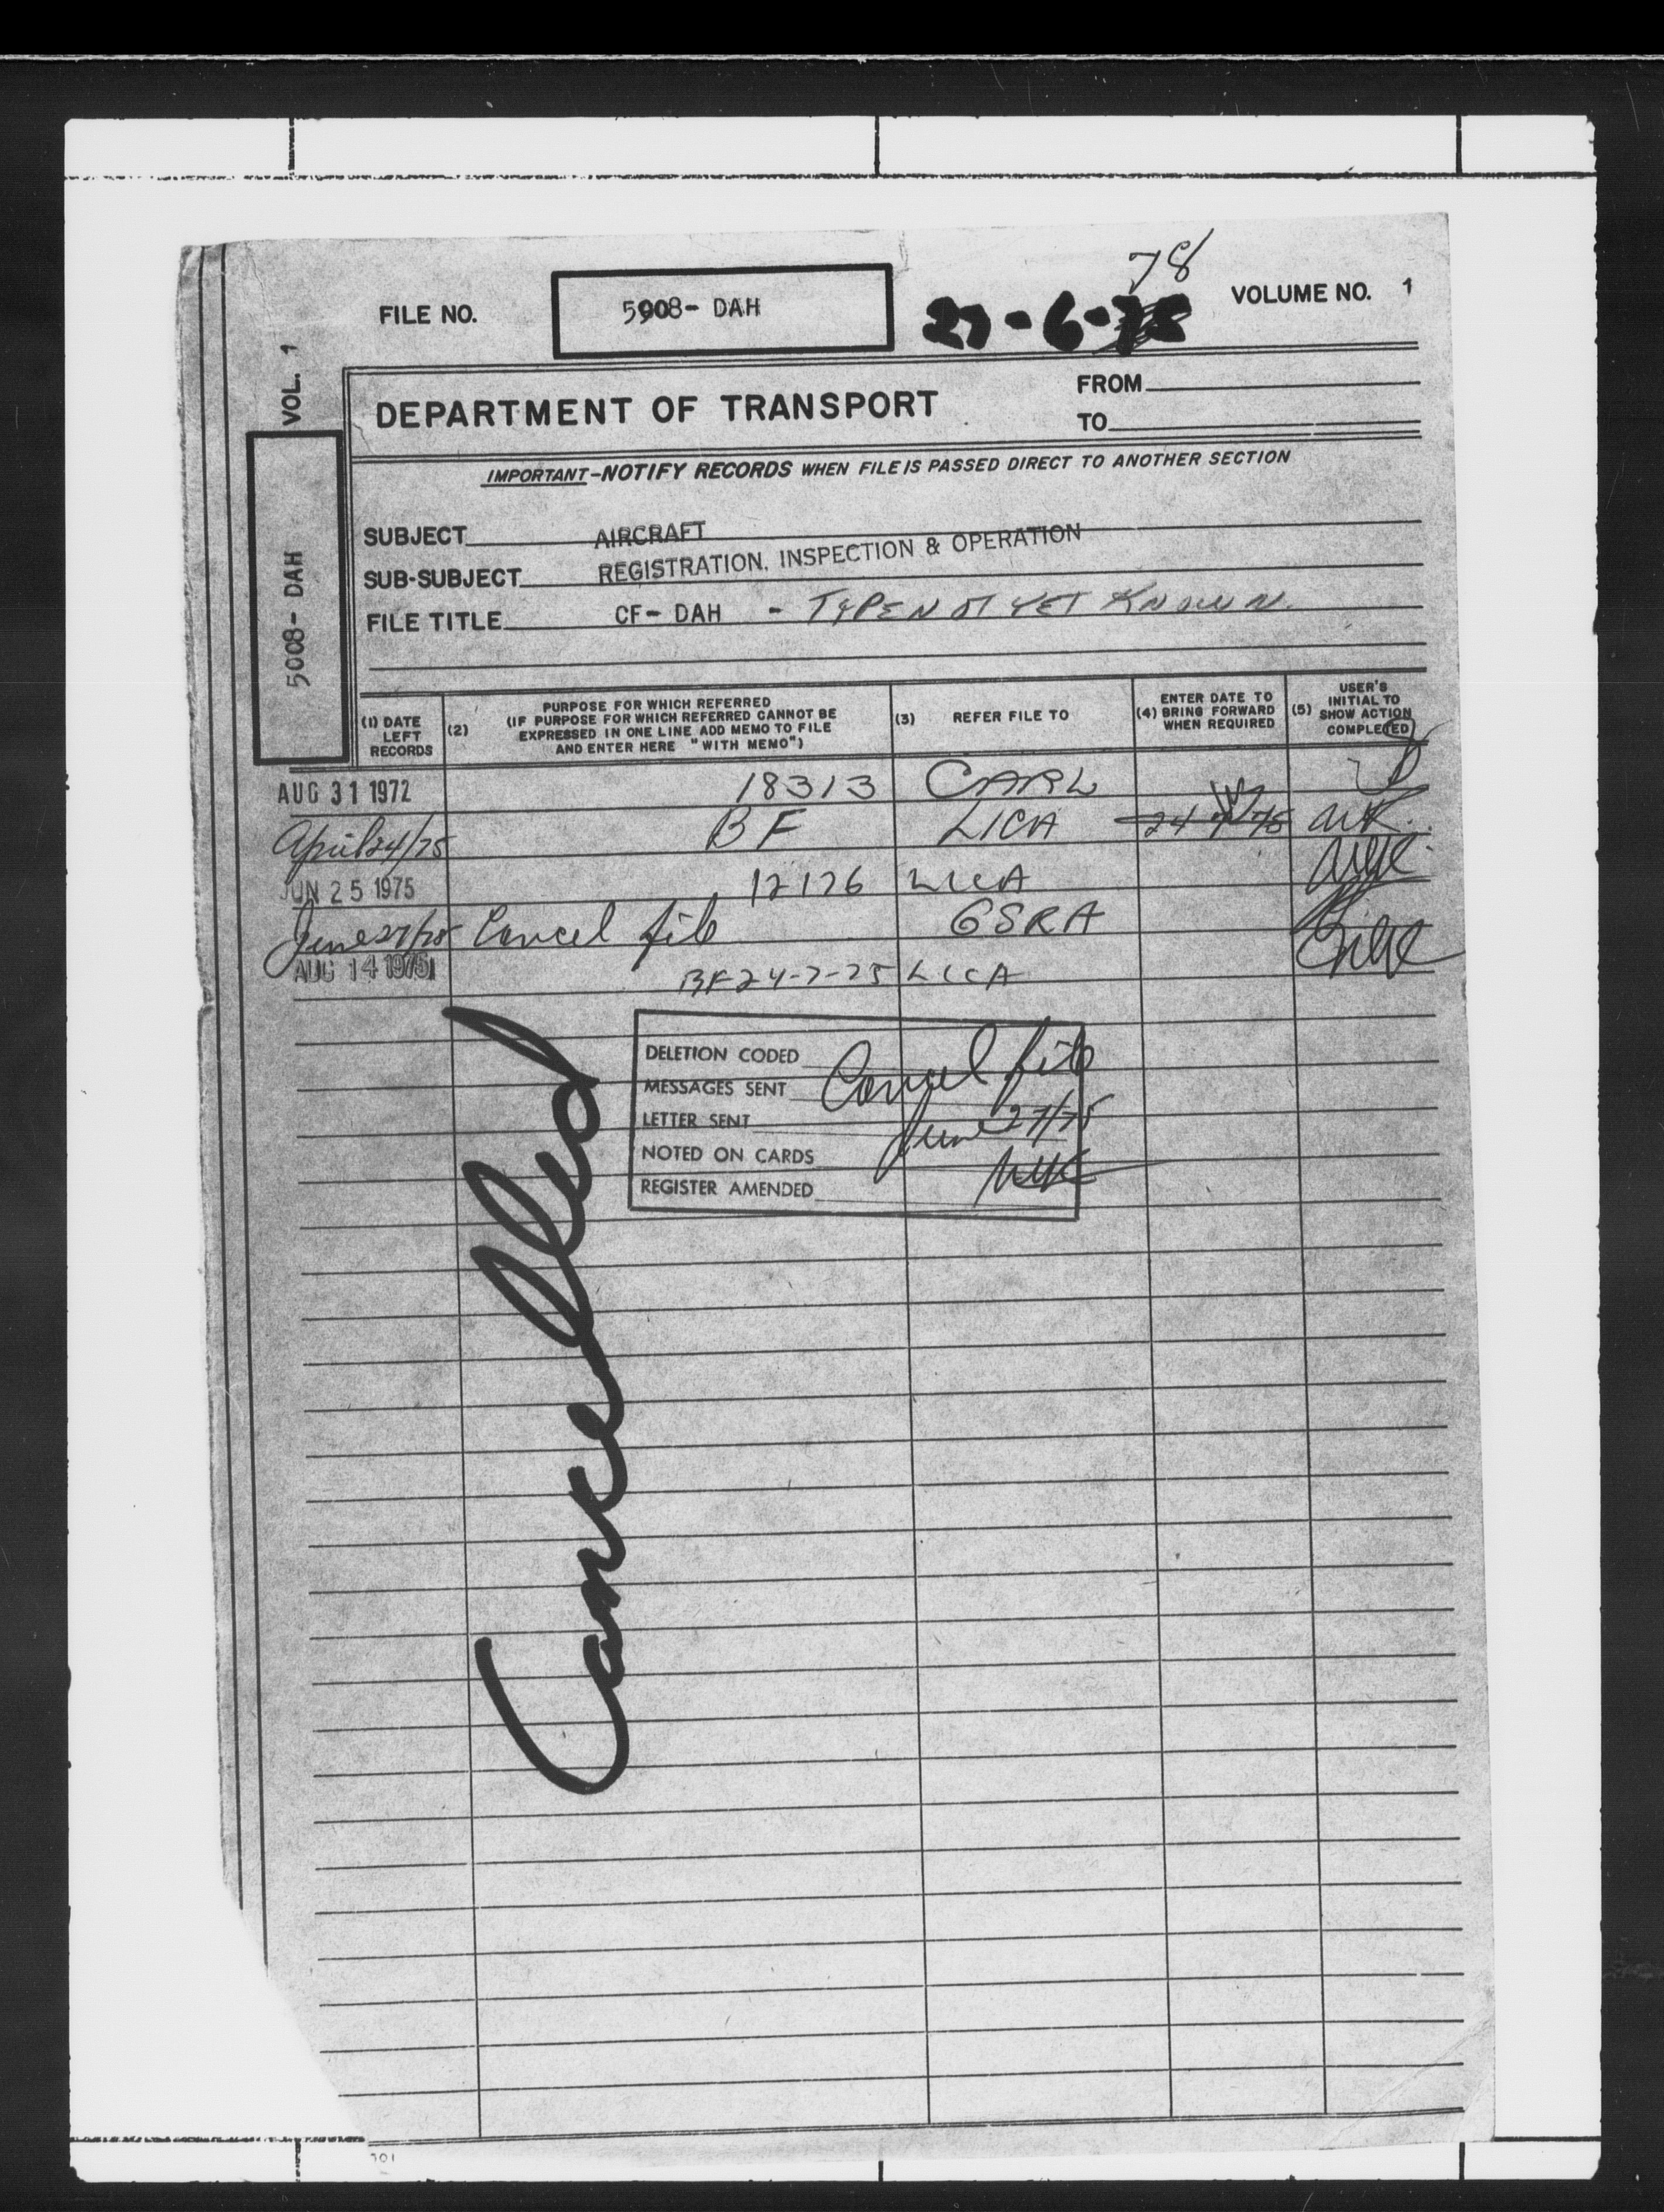 78
FILE NO. 5008- DAH 27-6- VOLUME NO. 1
VOL. 1
5008- DAH
DEPARTMENT OF TRANSPORT
FROM
TO
IMPORTANT-NOTIFY RECORDS WHEN FILE IS PASSED DIRECT TO ANOTHER SECTION
SUBJECT AIRCRAFT
SUB-SUBJECT REGISTRATION, INSPECTION & OPERATION
FILE TITLE CF- DAH - TYPE NOT YET KNOWN.
(1) DATE LEFT RECORDS
(2) PURPOSE FOR WHICH REFERRED
(IF PURPOSE FOR WHICH REFERRED CANNOT BE
EXPRESSED IN ONE LINE ADD MEMO TO FILE
AND ENTER HERE "WITH MEMO")
(3) REFER FILE TO
ENTER DATE TO
(4) BRING FORWARD
WHEN REQUIRED
(5) USER'S
INITIAL TO
SHOW ACTION
COMPLETED
AUG 31 1972 18313 CARL
April 24/75 BF LICA
JUN 25 1975 12126 LICA
June 27/75 Cancel file GSRA
AUG 14 1975 BF 24-7-75 LICA
DELETION CODED Cancel file
MESSAGES SENT
LETTER SENT June 27/75
NOTED ON CARDS
REGISTER AMENDED
Cancelled